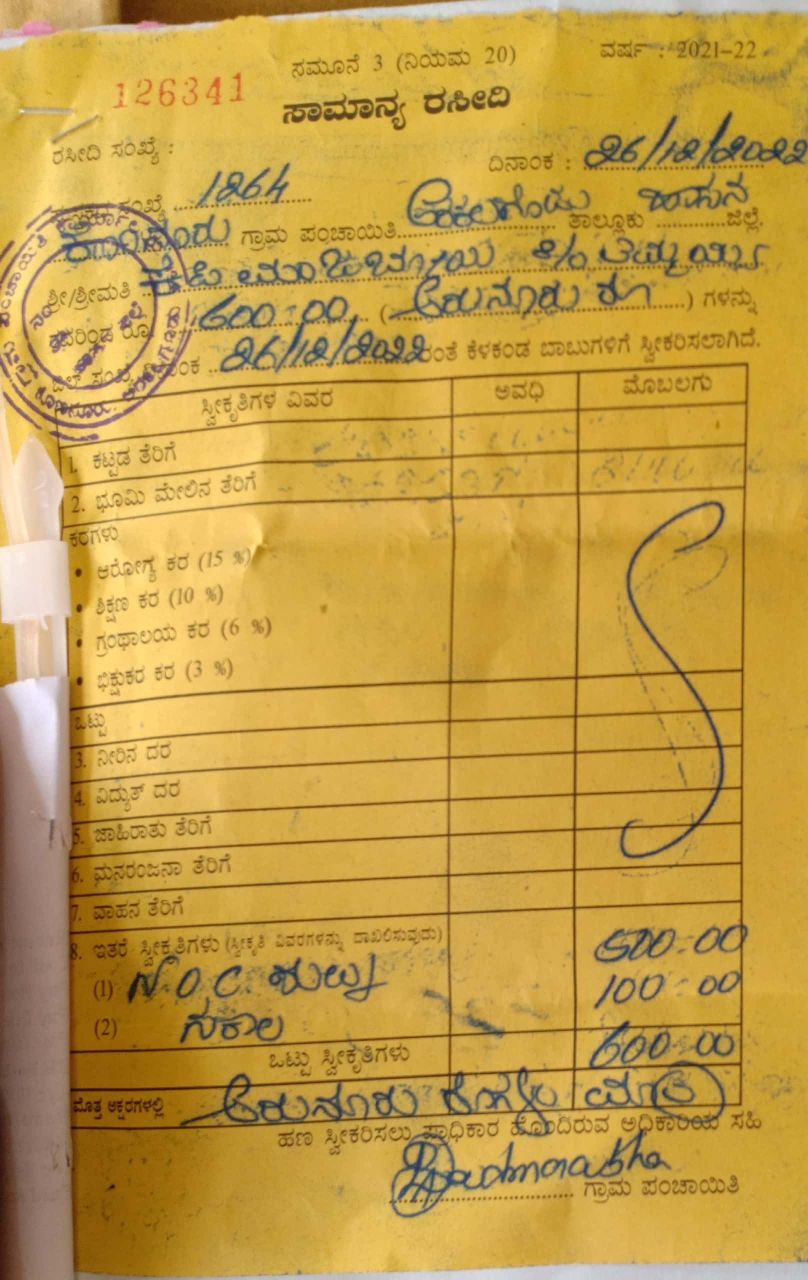 ಸಮೂನೆ 3 (ನಿಯಮ 20) ವರ್ಷ : 2021-22
126341
ಸಾಮಾನ್ಯ ರಸೀದಿ
ರಸೀದಿ ಸಂಖ್ಯೆ : ದಿನಾಂಕ : 26/12/2022
ಸಂಖ್ಯೆ 1264
ಗ್ರಾಮ ಪಂಚಾಯಿತಿ ಅರಕಲಗೂಡು ತಾಲ್ಲೂಕು ಹಾಸನ ಜಿಲ್ಲೆ.
ಶ್ರೀ/ಶ್ರೀಮತಿ
ರೂ. 600-00 (ಆರುನೂರು ರೂ) ಗಳನ್ನು
26/12/2022 ರಂತೆ ಕೆಳಕಂಡ ಬಾಬುಗಳಿಗೆ ಸ್ವೀಕರಿಸಲಾಗಿದೆ.
ಸ್ವೀಕೃತಿಗಳ ವಿವರ ಅವಧಿ ಮೊಬಲಗು
1. ಕಟ್ಟಡ ತೆರಿಗೆ
2. ಭೂಮಿ ಮೇಲಿನ ತೆರಿಗೆ
ಕರಗಳು
• ಆರೋಗ್ಯ ಕರ (15 %)
• ಶಿಕ್ಷಣ ಕರ (10 %)
• ಗ್ರಂಥಾಲಯ ಕರ (6 %)
• ಭಿಕ್ಷುಕರ ಕರ (3 %)
ಒಟ್ಟು
3. ನೀರಿನ ದರ
4. ವಿದ್ಯುತ್ ದರ
5. ಜಾಹಿರಾತು ತೆರಿಗೆ
6. ಮನರಂಜನಾ ತೆರಿಗೆ
7. ವಾಹನ ತೆರಿಗೆ
8. ಇತರೆ ಸ್ವೀಕೃತಿಗಳು (ಸ್ವೀಕೃತಿ ವಿವರಗಳನ್ನು ದಾಖಲಿಸುವುದು)
(1) N O C ಶುಲ್ಕ 500-00
(2) ಸಕಾಲ 100-00
ಒಟ್ಟು ಸ್ವೀಕೃತಿಗಳು 600-00
ಮೊತ್ತ ಅಕ್ಷರಗಳಲ್ಲಿ ಆರುನೂರು ರೂಗಳು ಮಾತ್ರ
ಹಣ ಸ್ವೀಕರಿಸಲು ಪ್ರಾಧಿಕಾರ ಹೊಂದಿರುವ ಅಧಿಕಾರಿಯ ಸಹಿ
ಗ್ರಾಮ ಪಂಚಾಯಿತಿ